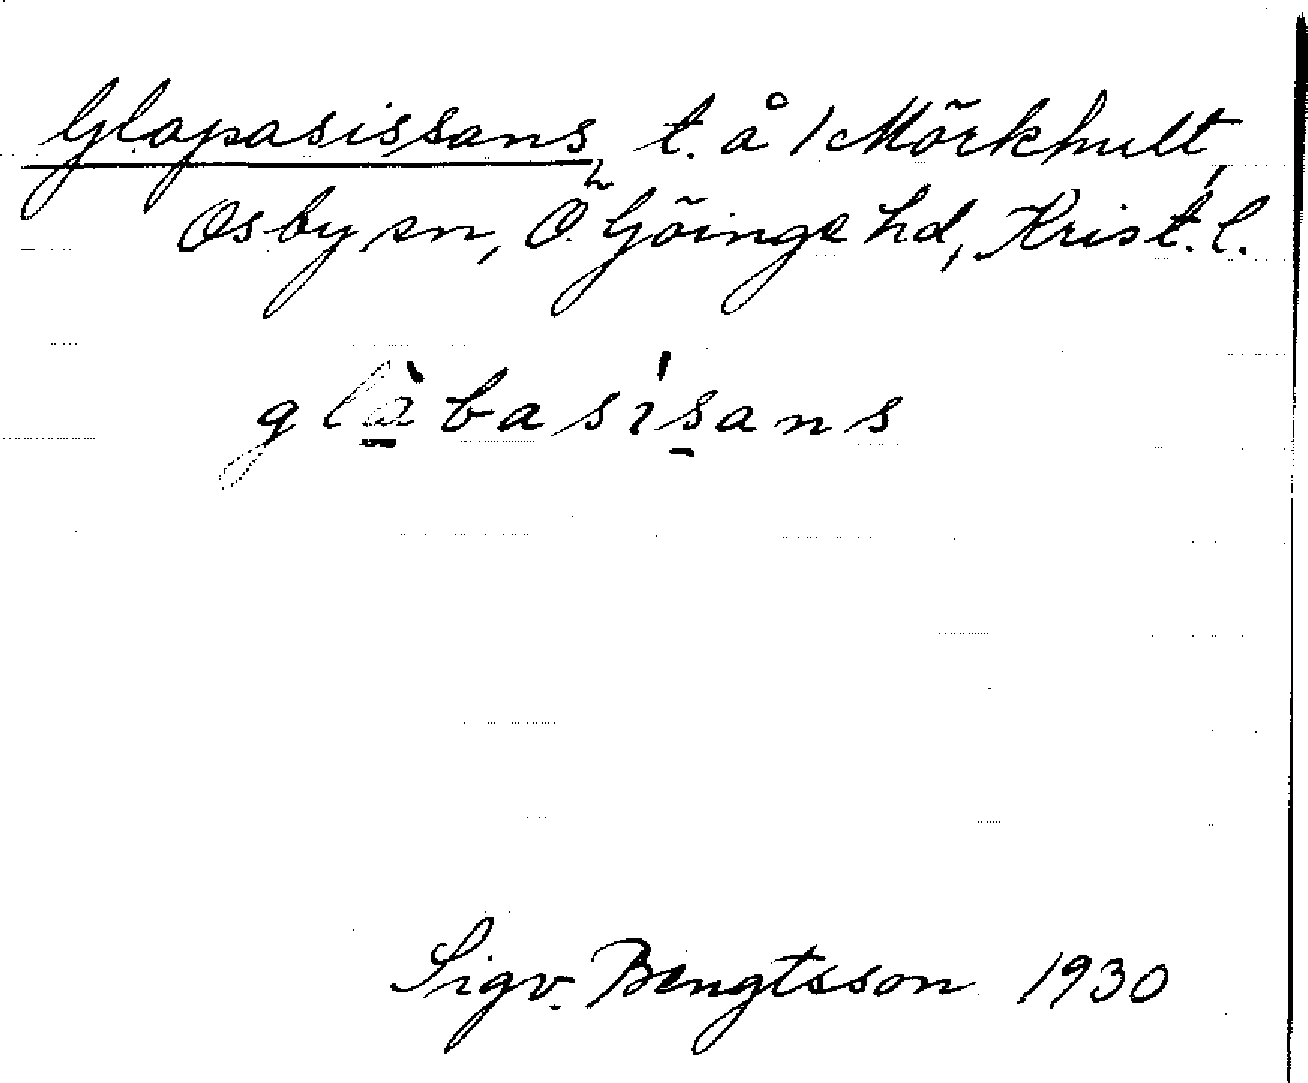 Glapasissans, t. å 1 Mörkhult,
Osby sn, Ö. Göinge hd, Krist. l.
glàbasísans
Sigv. Bengtsson 1930